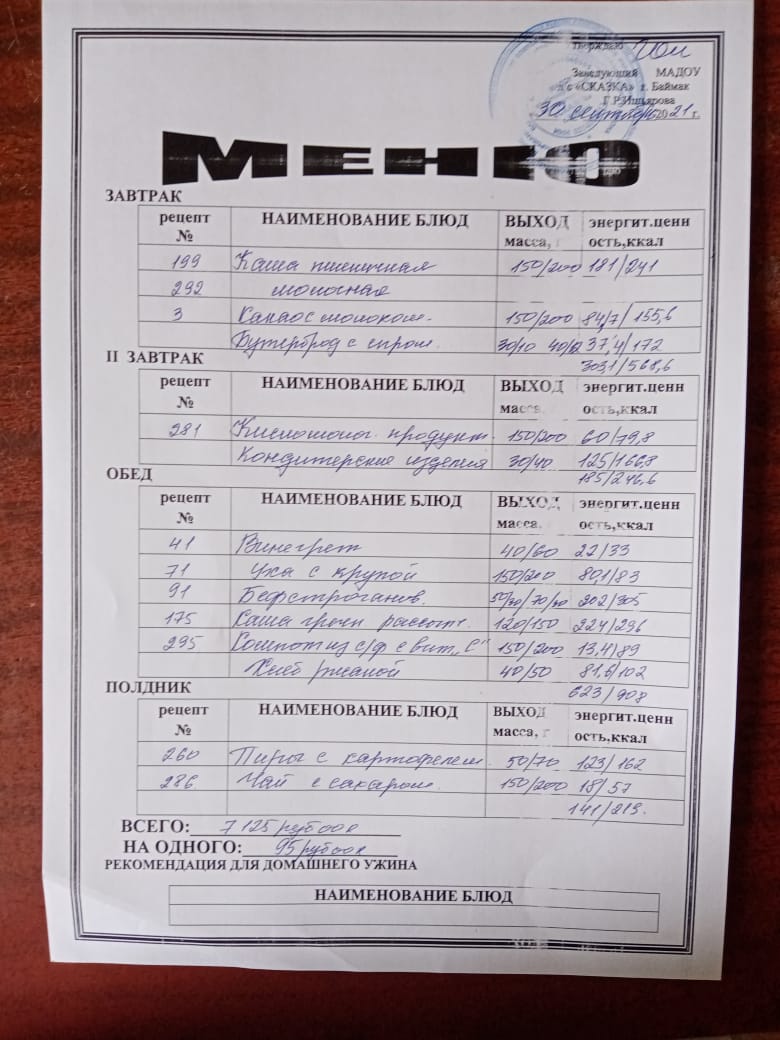 Утверждаю
Заведующий МАДОУ
д/с «СКАЗКА» г. Баймак
Г.Р.Ишъярова
30 сентября 2021 г.
МЕНЮ
ЗАВТРАК
рецепт № НАИМЕНОВАНИЕ БЛЮД ВЫХОД масса, г энергит.ценн ость,ккал
199 Каша пшеничная 150/200 181/241
292 молочная
3 Какао с молоком. 150/200 84,7/155,6
Бутерброд с сыром. 30/10 37,4/172
303,1/568,6
II ЗАВТРАК
рецепт № НАИМЕНОВАНИЕ БЛЮД ВЫХОД масса, энергит.ценн ость,ккал
281 Кисломолоч. продукт. 150/200 60/79,8
Кондитерские изделия 30/40 125/166,8
185/246,6
ОБЕД
рецепт № НАИМЕНОВАНИЕ БЛЮД ВЫХОД масса, энергит.ценн ость,ккал
41 Винегрет 40/60 22/33
71 Уха с крупой 150/200 80,1/83
91 Бефстроганов. 50/20/70/20 202/305
175 Каша гречн рассыпч. 120/150 224/296
295 Компот из с/ф с вит „С" 150/200 13,4/89
Хлеб ржаной 40/50 81,6/102
623/908
ПОЛДНИК
рецепт № НАИМЕНОВАНИЕ БЛЮД ВЫХОД масса, г энергит.ценн ость,ккал
260 Пирог с картофелем 50/70 123/162
286 Чай с сахаром. 150/200 18/57
141/219.
ВСЕГО: 7125 руб 00 к
НА ОДНОГО: 95 руб 00 к
РЕКОМЕНДАЦИЯ ДЛЯ ДОМАШНЕГО УЖИНА
НАИМЕНОВАНИЕ БЛЮД